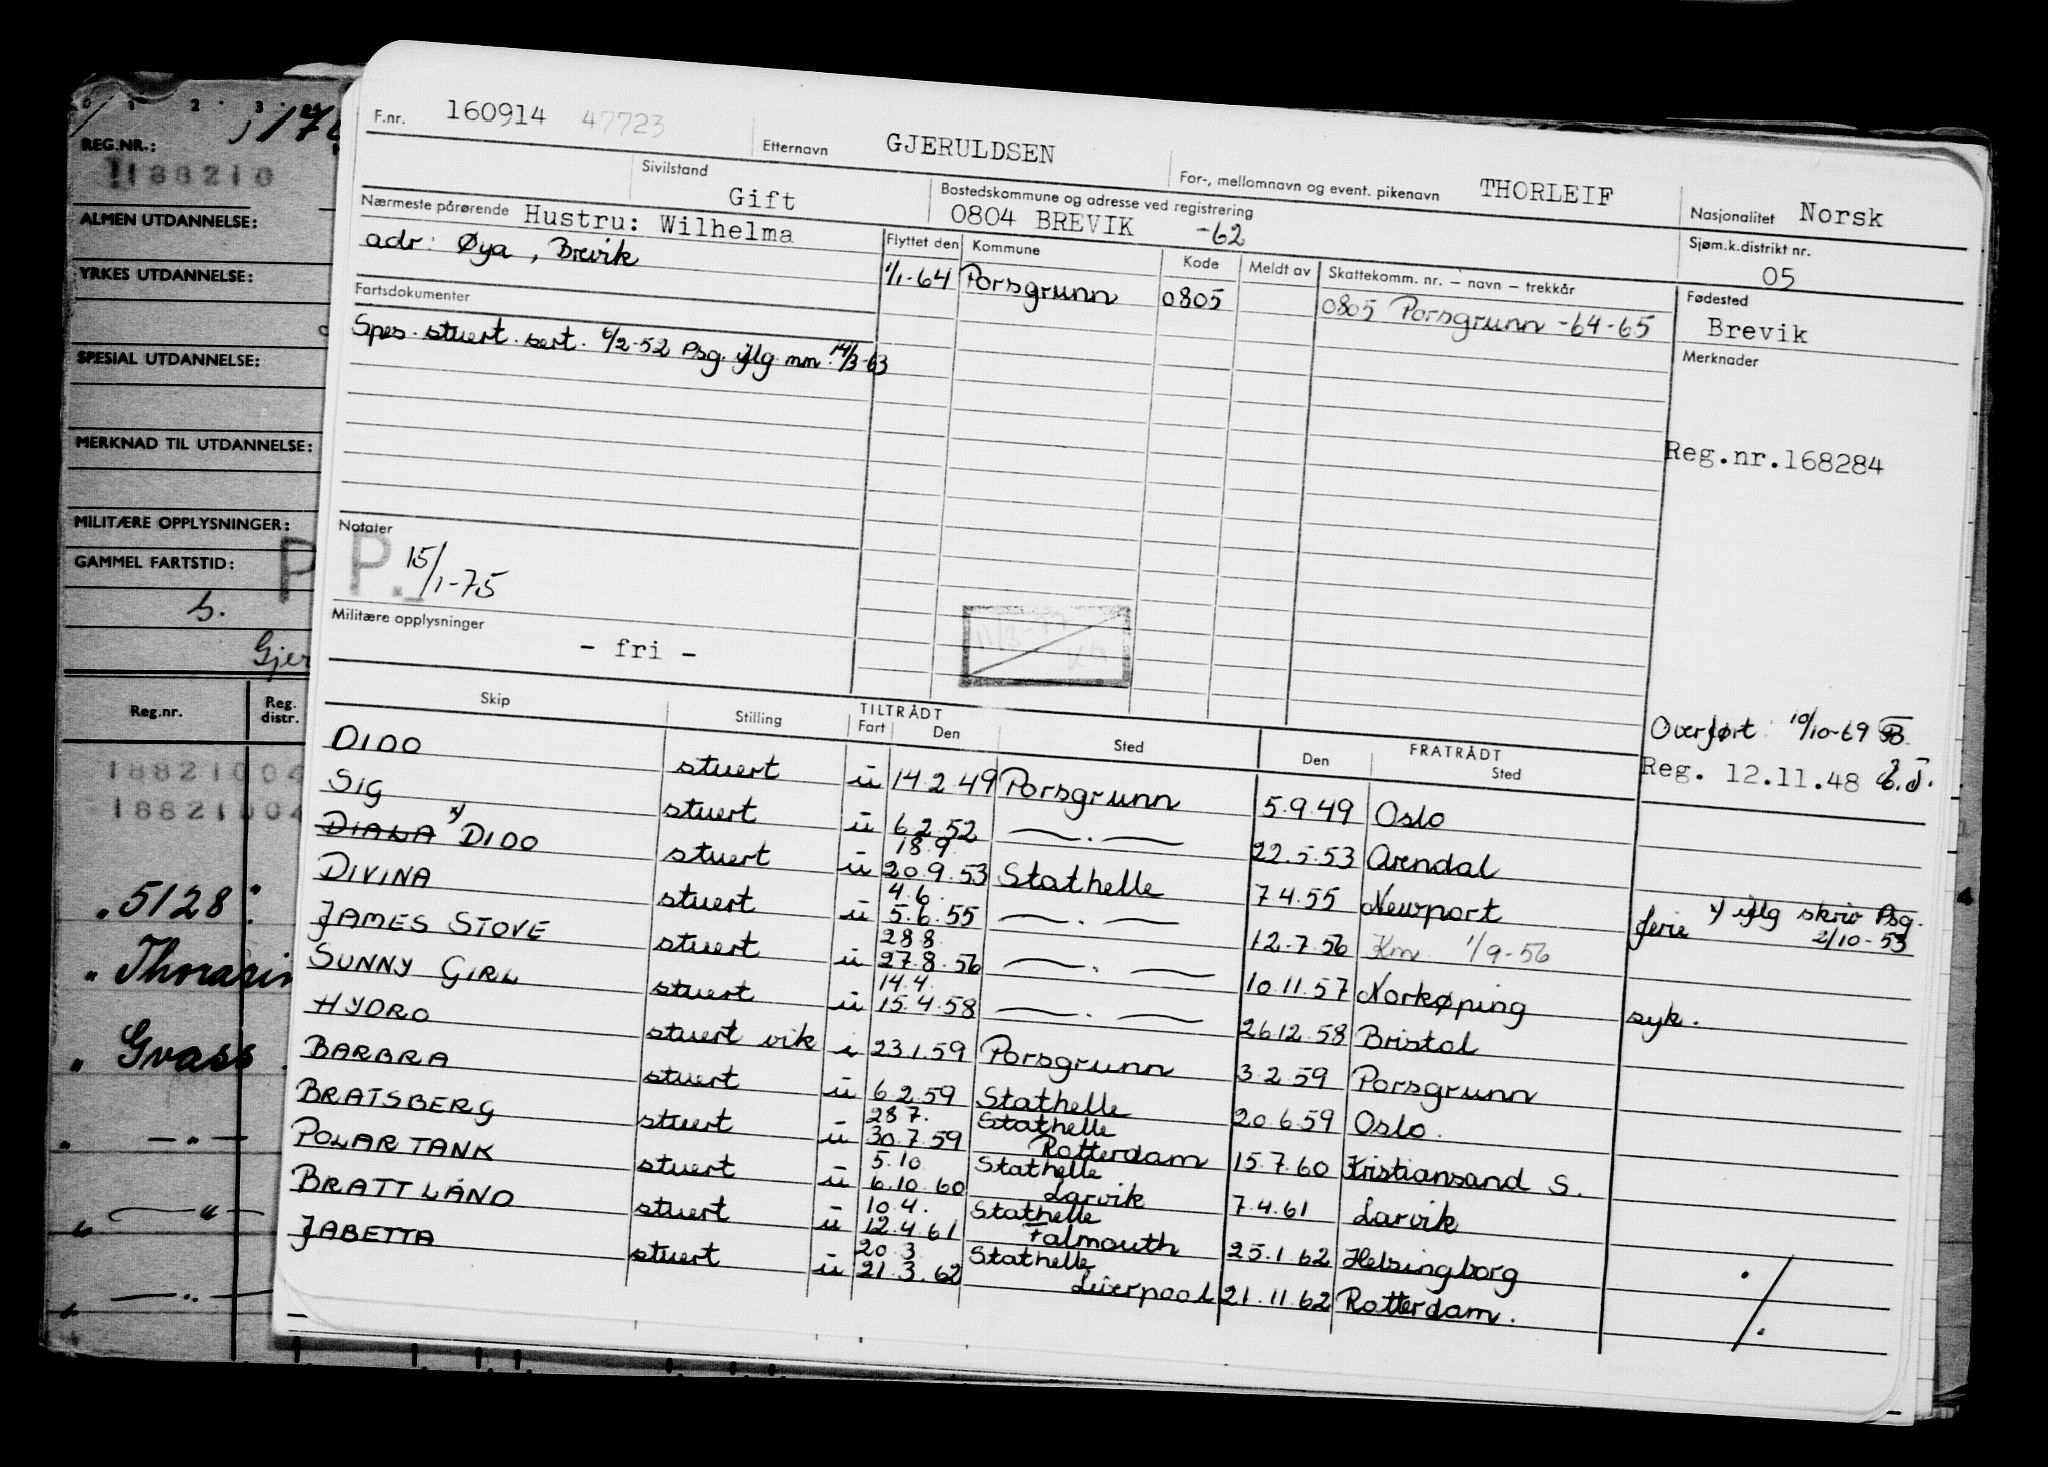 F.nr. 160914 47723 Etternavn GJERULDSEN For-, mellomnavn og event. pikenavn THORLEIF Nasjonalitet Norsk
Sivilstand Gift Bostedskommune og adresse ved registrering 0804 BREVIK -62 Sjøm.k.distrikt nr. 05
Nærmeste pårørende Hustru: Wilhelma
adr: Øya, Brevik
Flyttet den Kommune Kode Meldt av Skattekomm. nr. – navn – trekkår
1/1-64 Porsgrunn 0805 0805 Porsgrunn -64-65
Fødested
Brevik
Merknader
Reg.nr.168284
Fartsdokumenter
Spes. stuert. sert. 6/2-52 Psg. iflg. mn. 14/3-63
Notater
P. 15/1-75
Militære opplysninger
- fri -
Overført: 10/10-69
Reg. 12.11.48
Skip Stilling TILTRÅDT Fart Den Sted FRATRÅDT Den Sted
DIDO stuert u 14.2.49 Porsgrunn 5.9.49 Oslo
SIG stuert u 6.2.52 —.— 22.5.53 Arendal
DIANA x) DIDO stuert u 18.9. 20.9.53 Stathelle 7.4.55 Newport x) iflg skriv Psg. 2/10-53
DIVINA stuert u 4.6. 5.6.55 —.— 12.7.56 Km 1/9-56 ferie
JAMES STOVE stuert u 28.8. 27.8.56 —.— 10.11.57 Norkøping
SUNNY GIRL stuert u 14.4. 15.4.58 —.— 26.12.58 Bristol syk.
HYDRO stuert vik i 23.1.59 Porsgrunn 3.2.59 Porsgrunn
BARBRA stuert u 6.2.59 Stathelle 20.6.59 Oslo.
BRATSBERG stuert u 28.7. 30.7.59 Stathelle Rotterdam 15.7.60 Kristiansand S.
POLARTANK stuert u 5.10. 6.10.60 Stathelle Larvik 7.4.61 Larvik
BRATTLAND stuert u 10.4. 12.4.61 Stathelle Falmouth 25.1.62 Helsingborg
JABETTA stuert u 20.3. 21.3.62 Stathelle Liverpool 21.11.62 Rotterdam.
REG.NR.:
188210
ALMEN UTDANNELSE:
YRKES UTDANNELSE:
SPESIAL UTDANNELSE:
MERKNAD TIL UTDANNELSE:
MILITÆRE OPPLYSNINGER:
GAMMEL FARTSTID: P
s.
Gjer
Reg.nr. Reg. distr.
18821004
18821004
"5128"